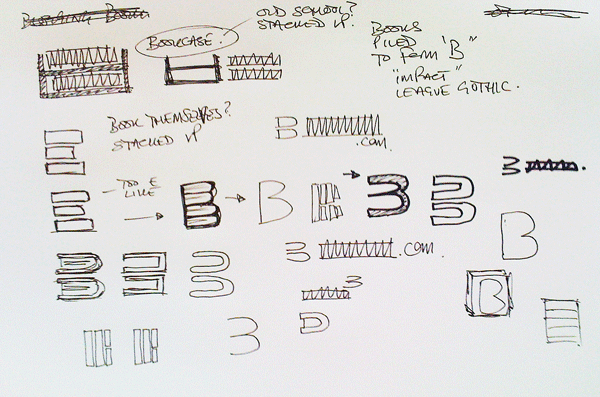 OLD SCHOOL?
STACKED UP.
BOOKCASE.
BOOKS
PILED
TO FORM "B"
"IMPACT"
LEAGUE GOTHIC.
BOOK THEMSELVES?
STACKED UP
B
.com.
TOO E
LIKE
B
B
3
B
3
.com.
3
B
B
3
D